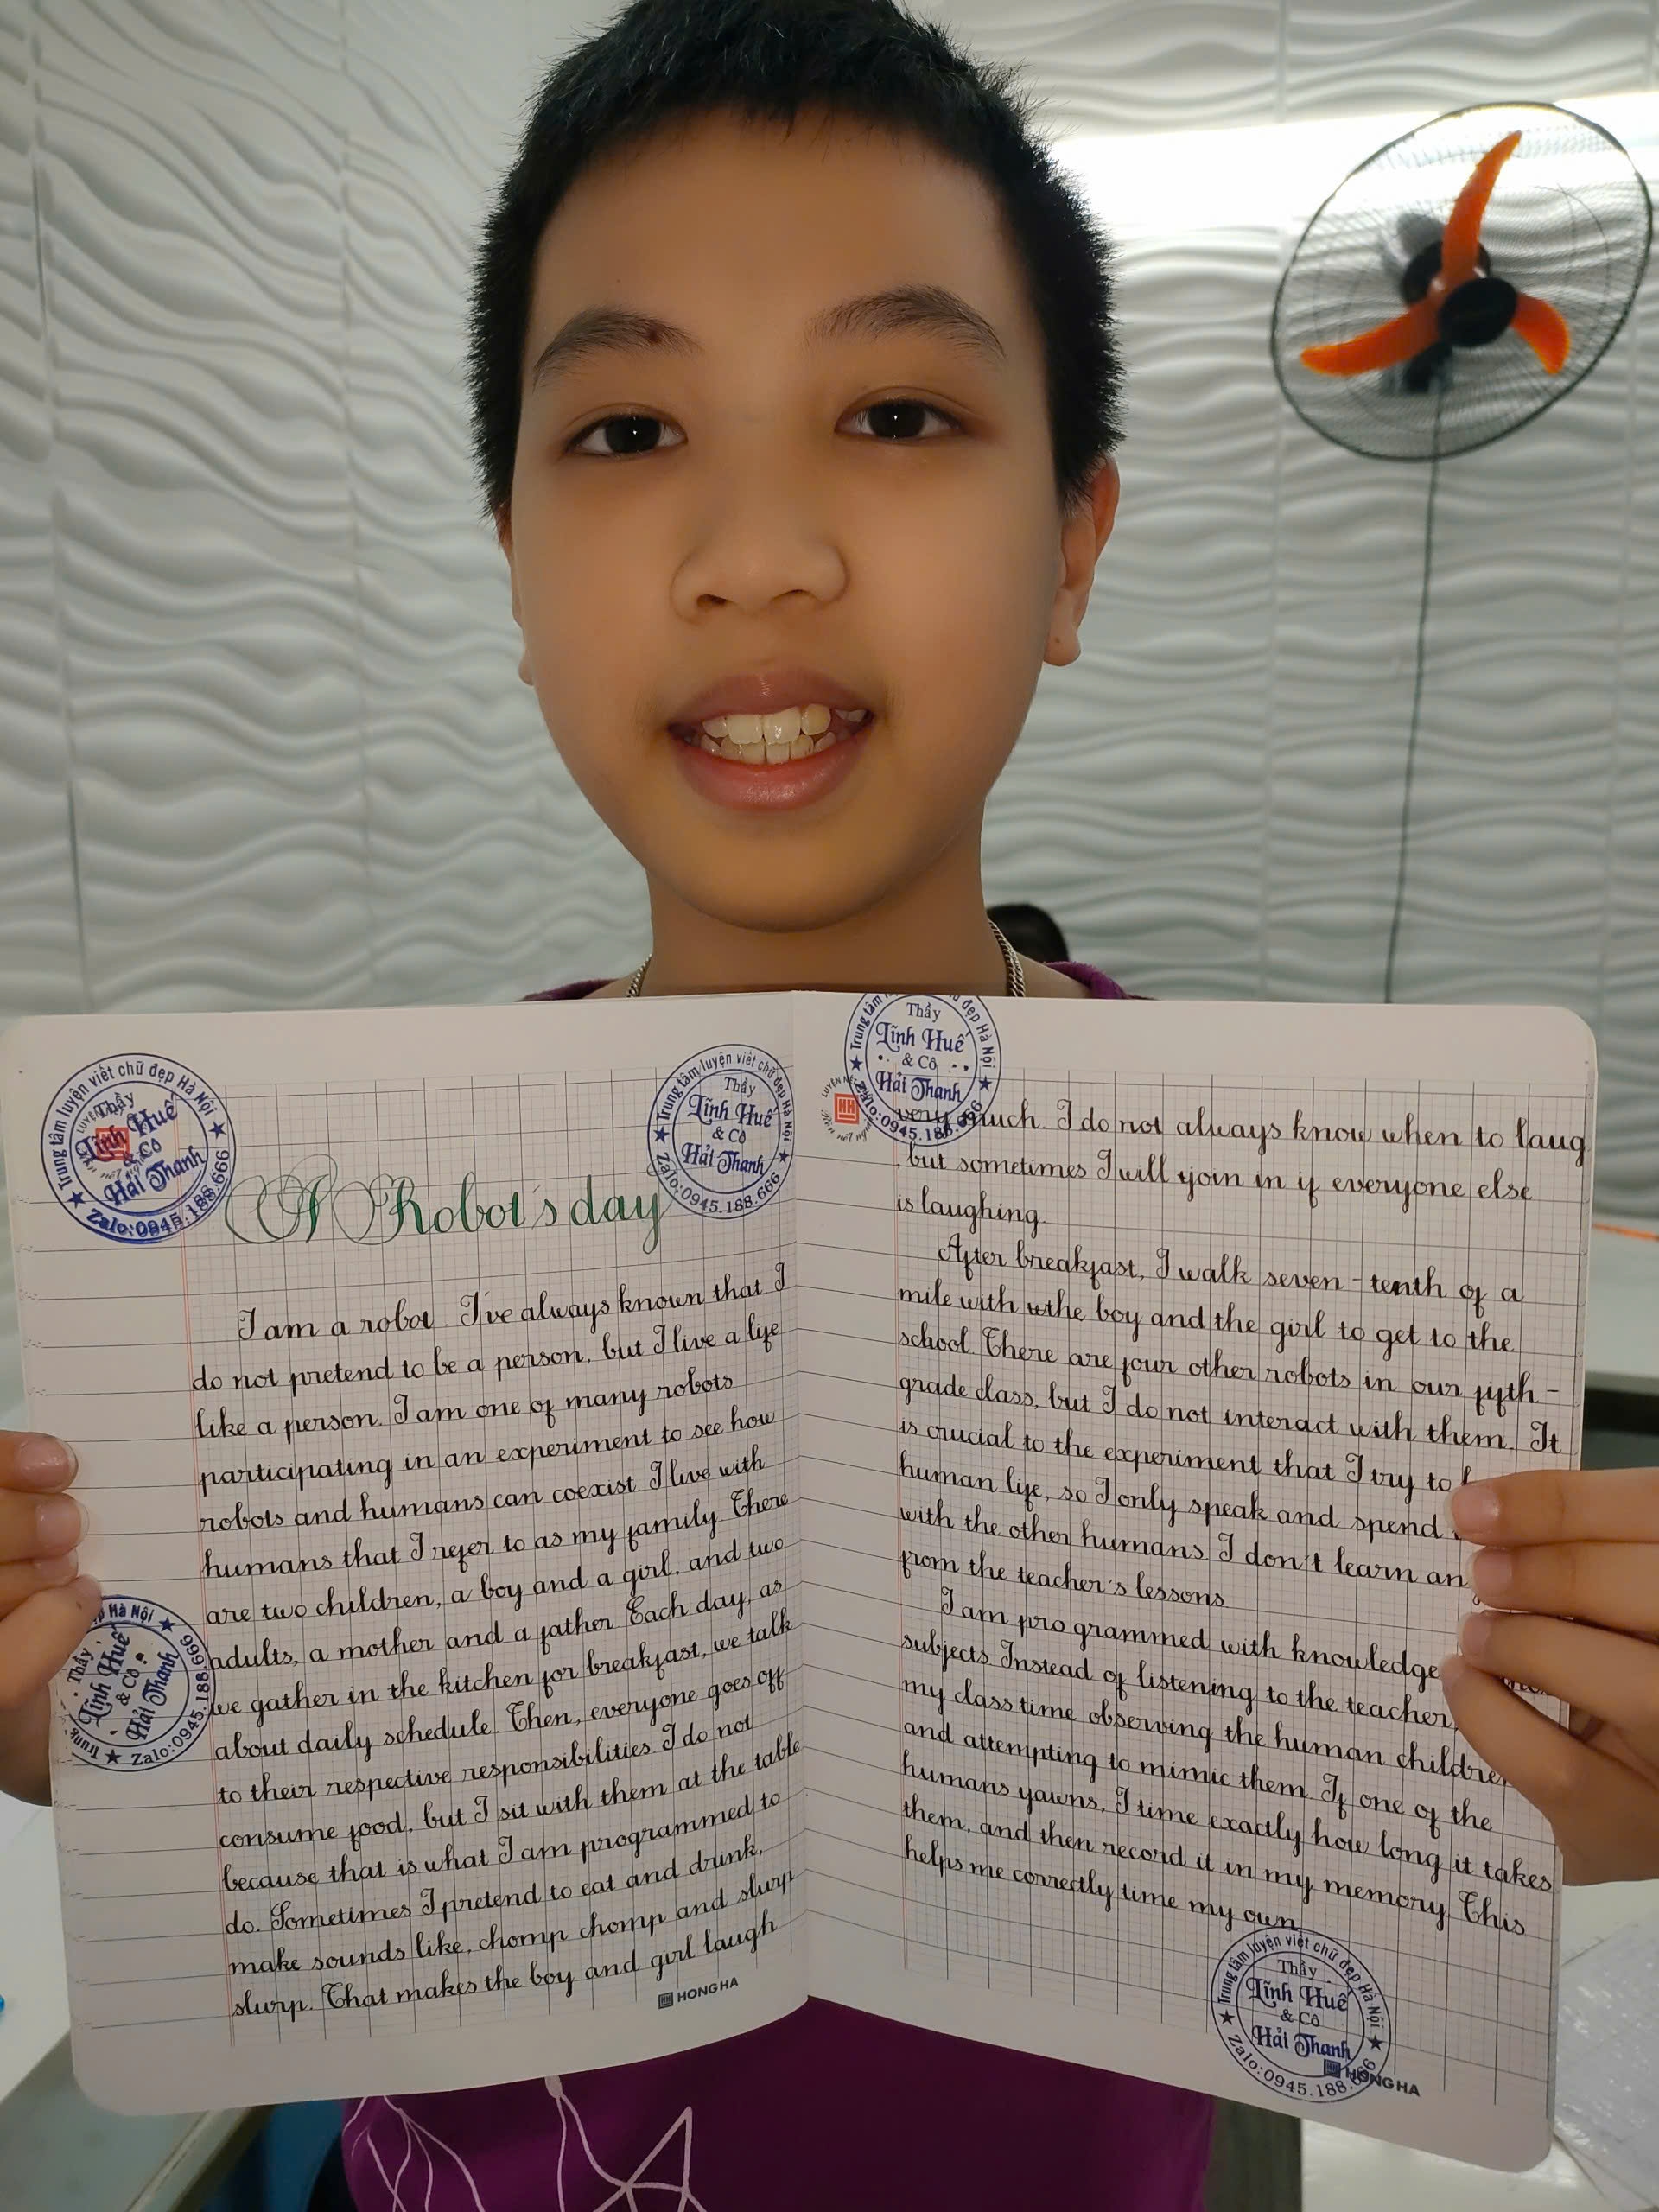 A Robot's day
I am a robot. I've always known that I
do not pretend to be a person, but I live a life
like a person. I am one of many robots
participating in an experiment to see how
robots and humans can coexist. I live with
humans that I refer to as my family. There
are two children, a boy and a girl, and two
adults, a mother and a father. Each day, as
we gather in the kitchen for breakfast, we talk
about daily schedule. Then, everyone goes off
to their respective responsibilities. I do not
consume food, but I sit with them at the table
because that is what I am programmed to
do. Sometimes I pretend to eat and drink,
make sounds like, chomp chomp and slurp
slurp. That makes the boy and girl laugh
HONG HA
very much. I do not always know when to laug
, but sometimes I will join in if everyone else
is laughing.
After breakfast, I walk seven - tenth of a
mile with the boy and the girl to get to the
school. There are four other robots in our fifth -
grade class, but I do not interact with them. It
is crucial to the experiment that I try to
human life, so I only speak and spend
with the other humans. I don't learn an
from the teacher's lessons
I am programmed with knowledge
subjects. Instead of listening to the teacher,
my class time observing the human children
and attempting to mimic them. If one of the
humans yawns, I time exactly how long it takes
them, and then record it in my memory. This
helps me correctly time my own.
HONG HA
Trung tâm luyện viết chữ đẹp Hà Nội
Thầy
Lĩnh Huế
& Cô
Hải Thanh
Zalo:0945.188.666
Trung tâm luyện viết chữ đẹp Hà Nội
Thầy
Lĩnh Huế
& Cô
Hải Thanh
Zalo:0945.188.666
Trung tâm đẹp Hà Nội
Thầy
Lĩnh Huế
& Cô
Hải Thanh
Zalo:0945.188.666
Hà Nội
Thầy
Lĩnh Huế
& Cô
Hải Thanh
Trung
Zalo:0945.188.666
Trung tâm luyện viết chữ đẹp Hà Nội
Thầy
Lĩnh Huế
& Cô
Hải Thanh
Zalo:0945.188.666